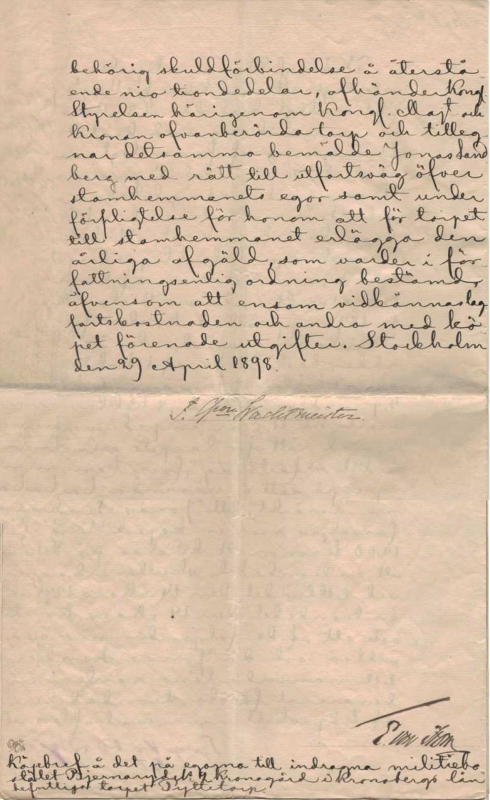 behörig skuldförbindelse å återstå
ende nio tiondedelar, afhänder Kongl.
Styrelsen härigenom Kongl. Maj:t och
Kronan ofvanberörda torp och tilleg
nar detsamma bemälde Jonas Sand
berg med rätt till utfartsväg öfver
stamhemmanets egor samt under
förpligtelse för honom att för torpet
till stamhemmanet erlägga den
årliga afgäld, som varder i för
fattningsenlig ordning bestämd,
äfvensom att ensam vidkännas lag
fartskostnaden och andra med kö
pet förenade utgifter. Stockholm
den 29 April 1898.
Wachtmeister.
Köpebref å det på egorna till indragna militiebo
stället kronogård i Kronobergs län
befintliga torpet Pyttetorp.